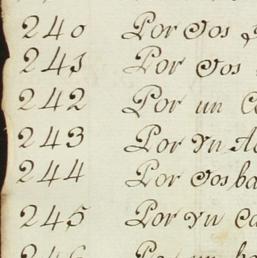 240 Por dos
241 Por dos
242 Por un
243 Por Yn
244 Por dos
245 Por Yn